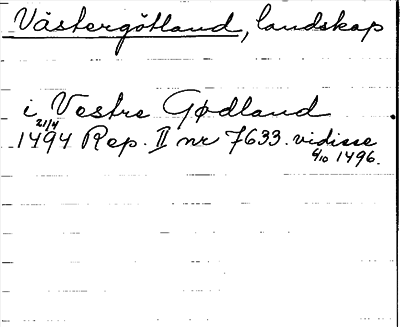 Västergötland, landskap
i Vestre Gødland
21/4
1494 Rep. II nr 7633. vidisse
4/10 1496.